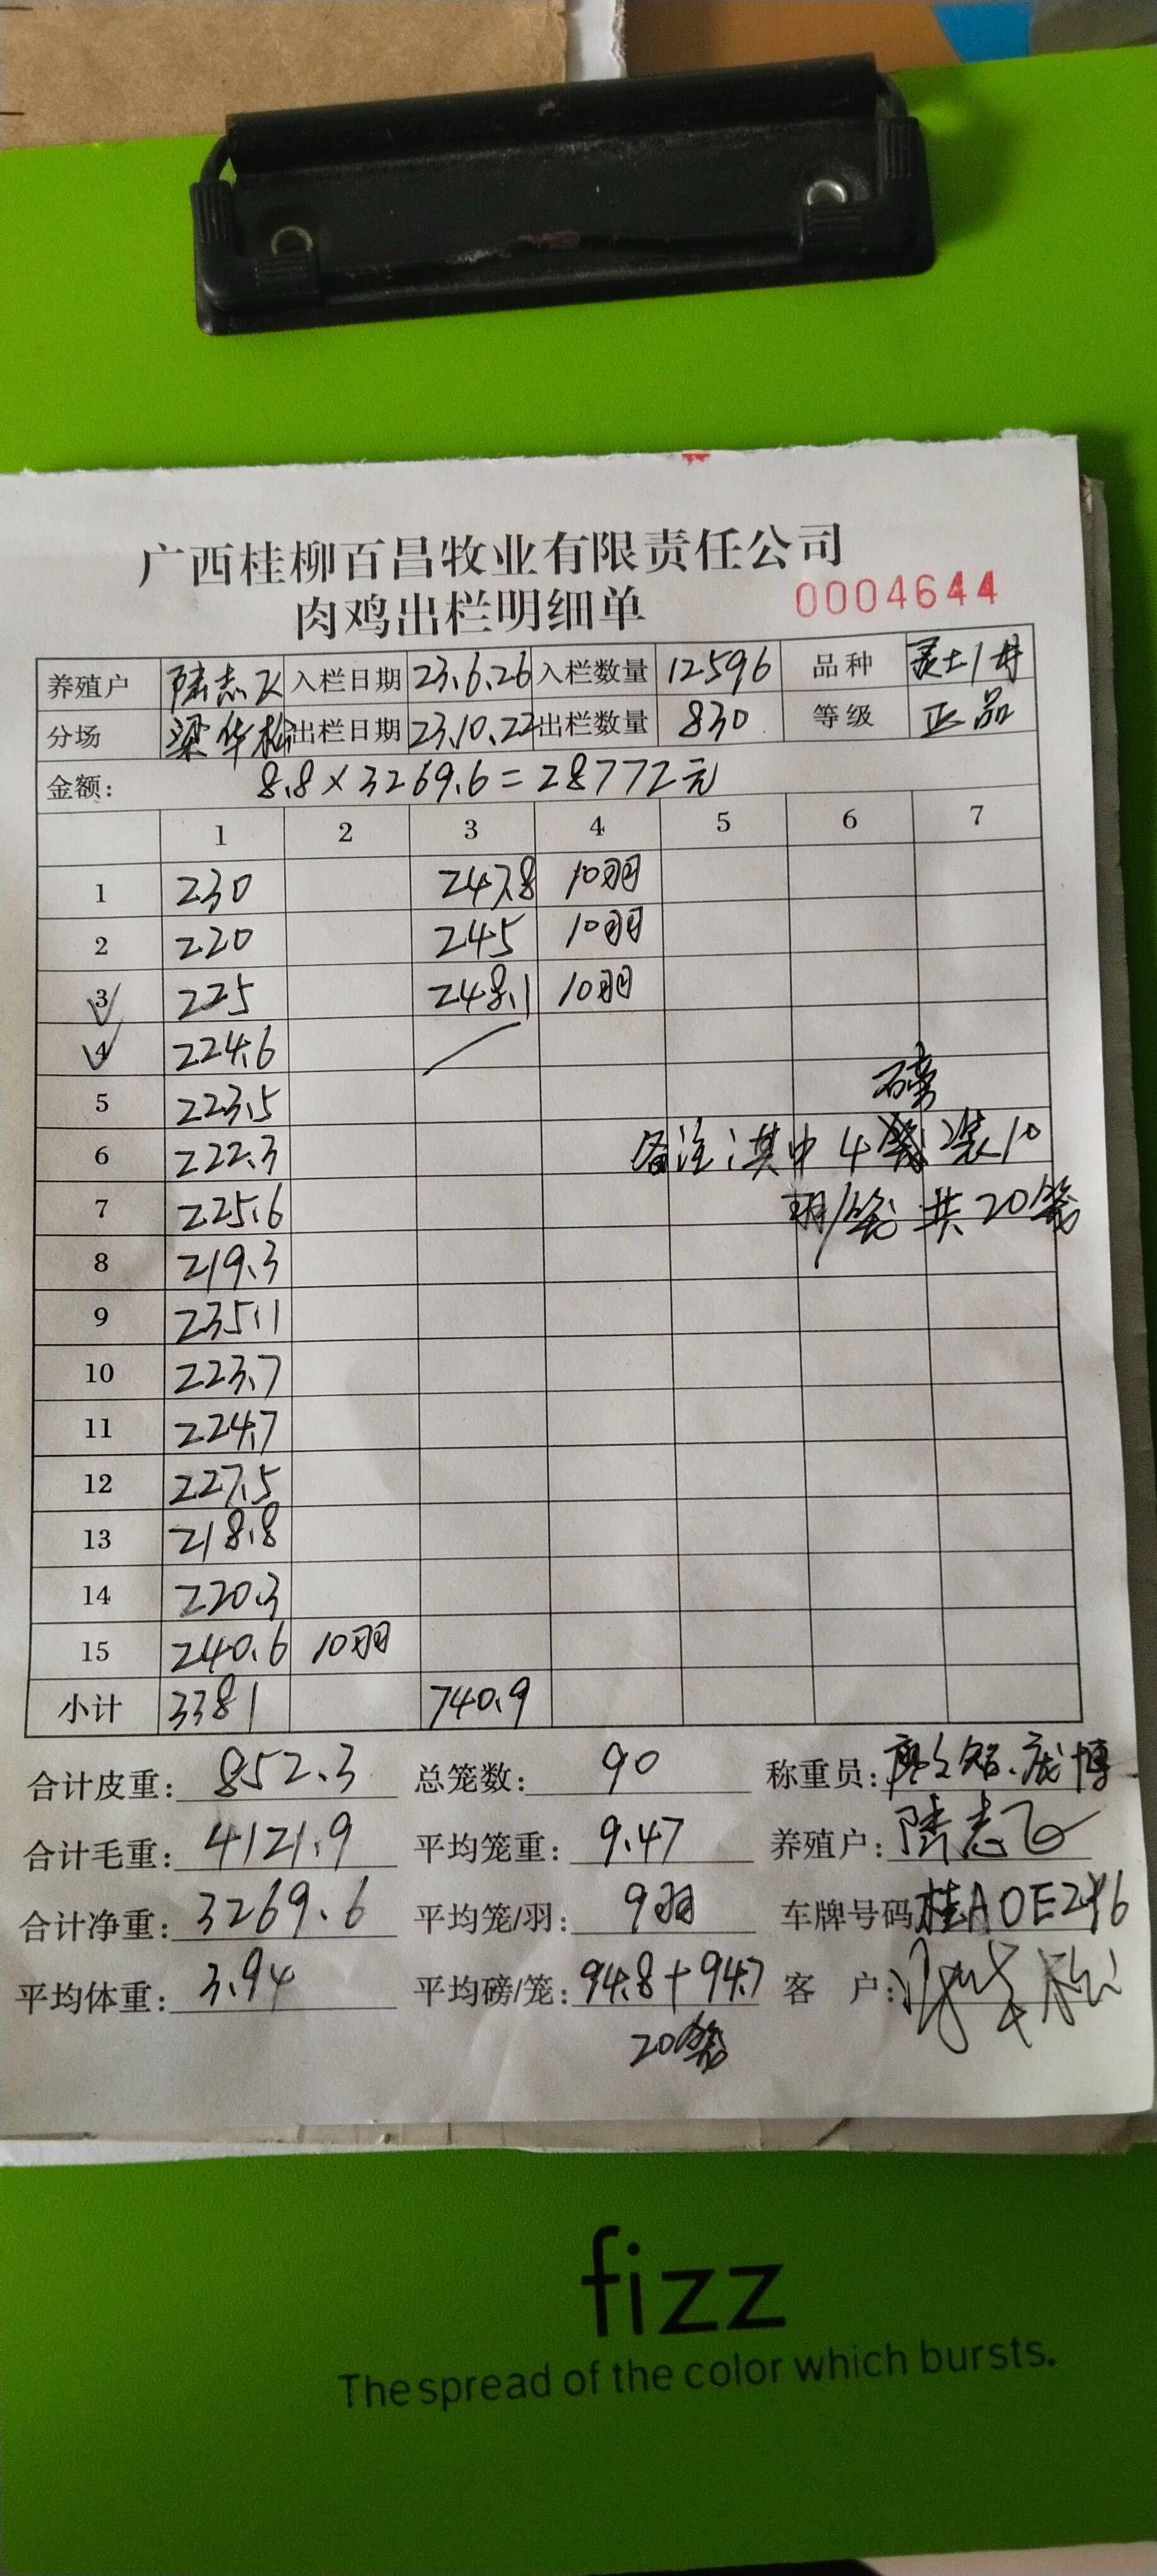 广西桂柳百昌牧业有限责任公司
肉鸡出栏明细单 0004644
养殖户 陆志飞 入栏日期 23.6.26 入栏数量 12596 品种 灵土1母
分场 梁华松 出栏日期 23.10.22 出栏数量 830 等级 正品
金额: 8.8×3269.6=28772元
1 2 3 4 5 6 7
1 230 247.8 10羽
2 220 245 10羽
3 225 248.1 10羽
4 224.6
5 223.5 磅
6 222.3 备注:其中4 装10
7 225.6 羽/笼 共20笼
8 219.3
9 235.1
10 223.7
11 224.7
12 227.5
13 218.8
14 220.3
15 240.6 10羽
小计 3381 740.9
合计皮重: 852.3 总笼数: 90 称重员:
合计毛重: 4121.9 平均笼重: 9.47 养殖户: 陆志飞
合计净重: 3269.6 平均笼/羽: 9羽 车牌号码 桂A0E2
平均体重: 3.94 平均磅/笼: 94.8+94.7 客 户:
20笼
fizz
The spread of the color which bursts.